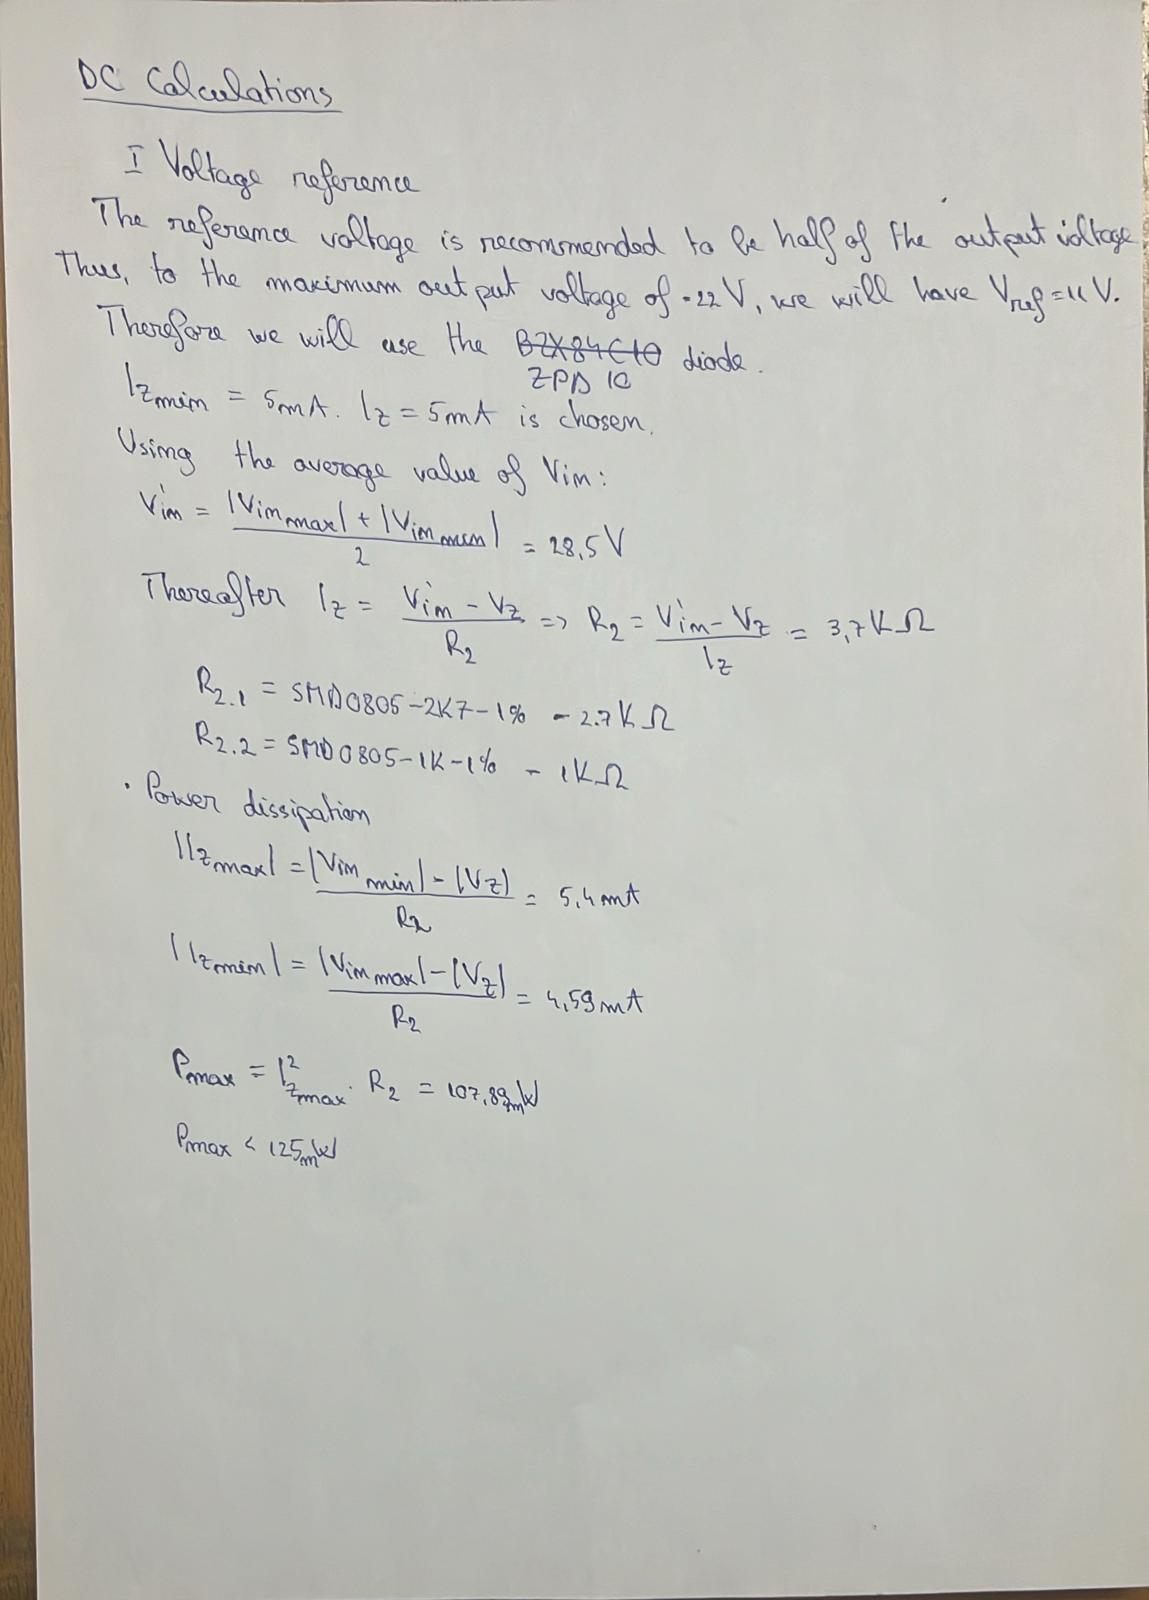 DC Calculations
I Voltage reference
The reference voltage is recommended to be half of the output voltage
Thus, to the maximum output voltage of -22 V, we will have Vref = 11 V.
Therefore we will use the BZX84C10 diode.
ZPD 10
Izmin = 5mA. Iz = 5mA is chosen.
Using the average value of Vin:
Vin' = (|Vin max| + |Vin min|) / 2 = 28,5 V
Thereafter Iz = (Vin' - Vz) / R2 => R2 = (Vin' - Vz) / Iz = 3,7 KΩ
R2.1 = SMD0805-2K7-1% - 2.7 KΩ
R2.2 = SMD0805-1K-1% - 1KΩ
• Power dissipation
|Izmax| = (|Vin min| - |Vz|) / R2 = 5,4 mA
|Izmin| = (|Vin max| - |Vz|) / R2 = 4,59 mA
Pmax = I²zmax · R2 = 107,89mW
Pmax < 125mW